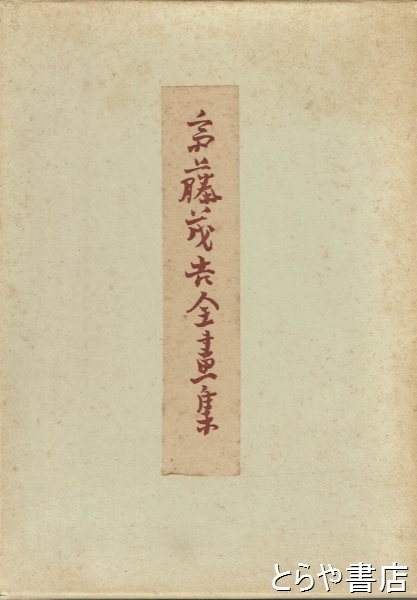 斎藤茂吉全畫集
とらや書店